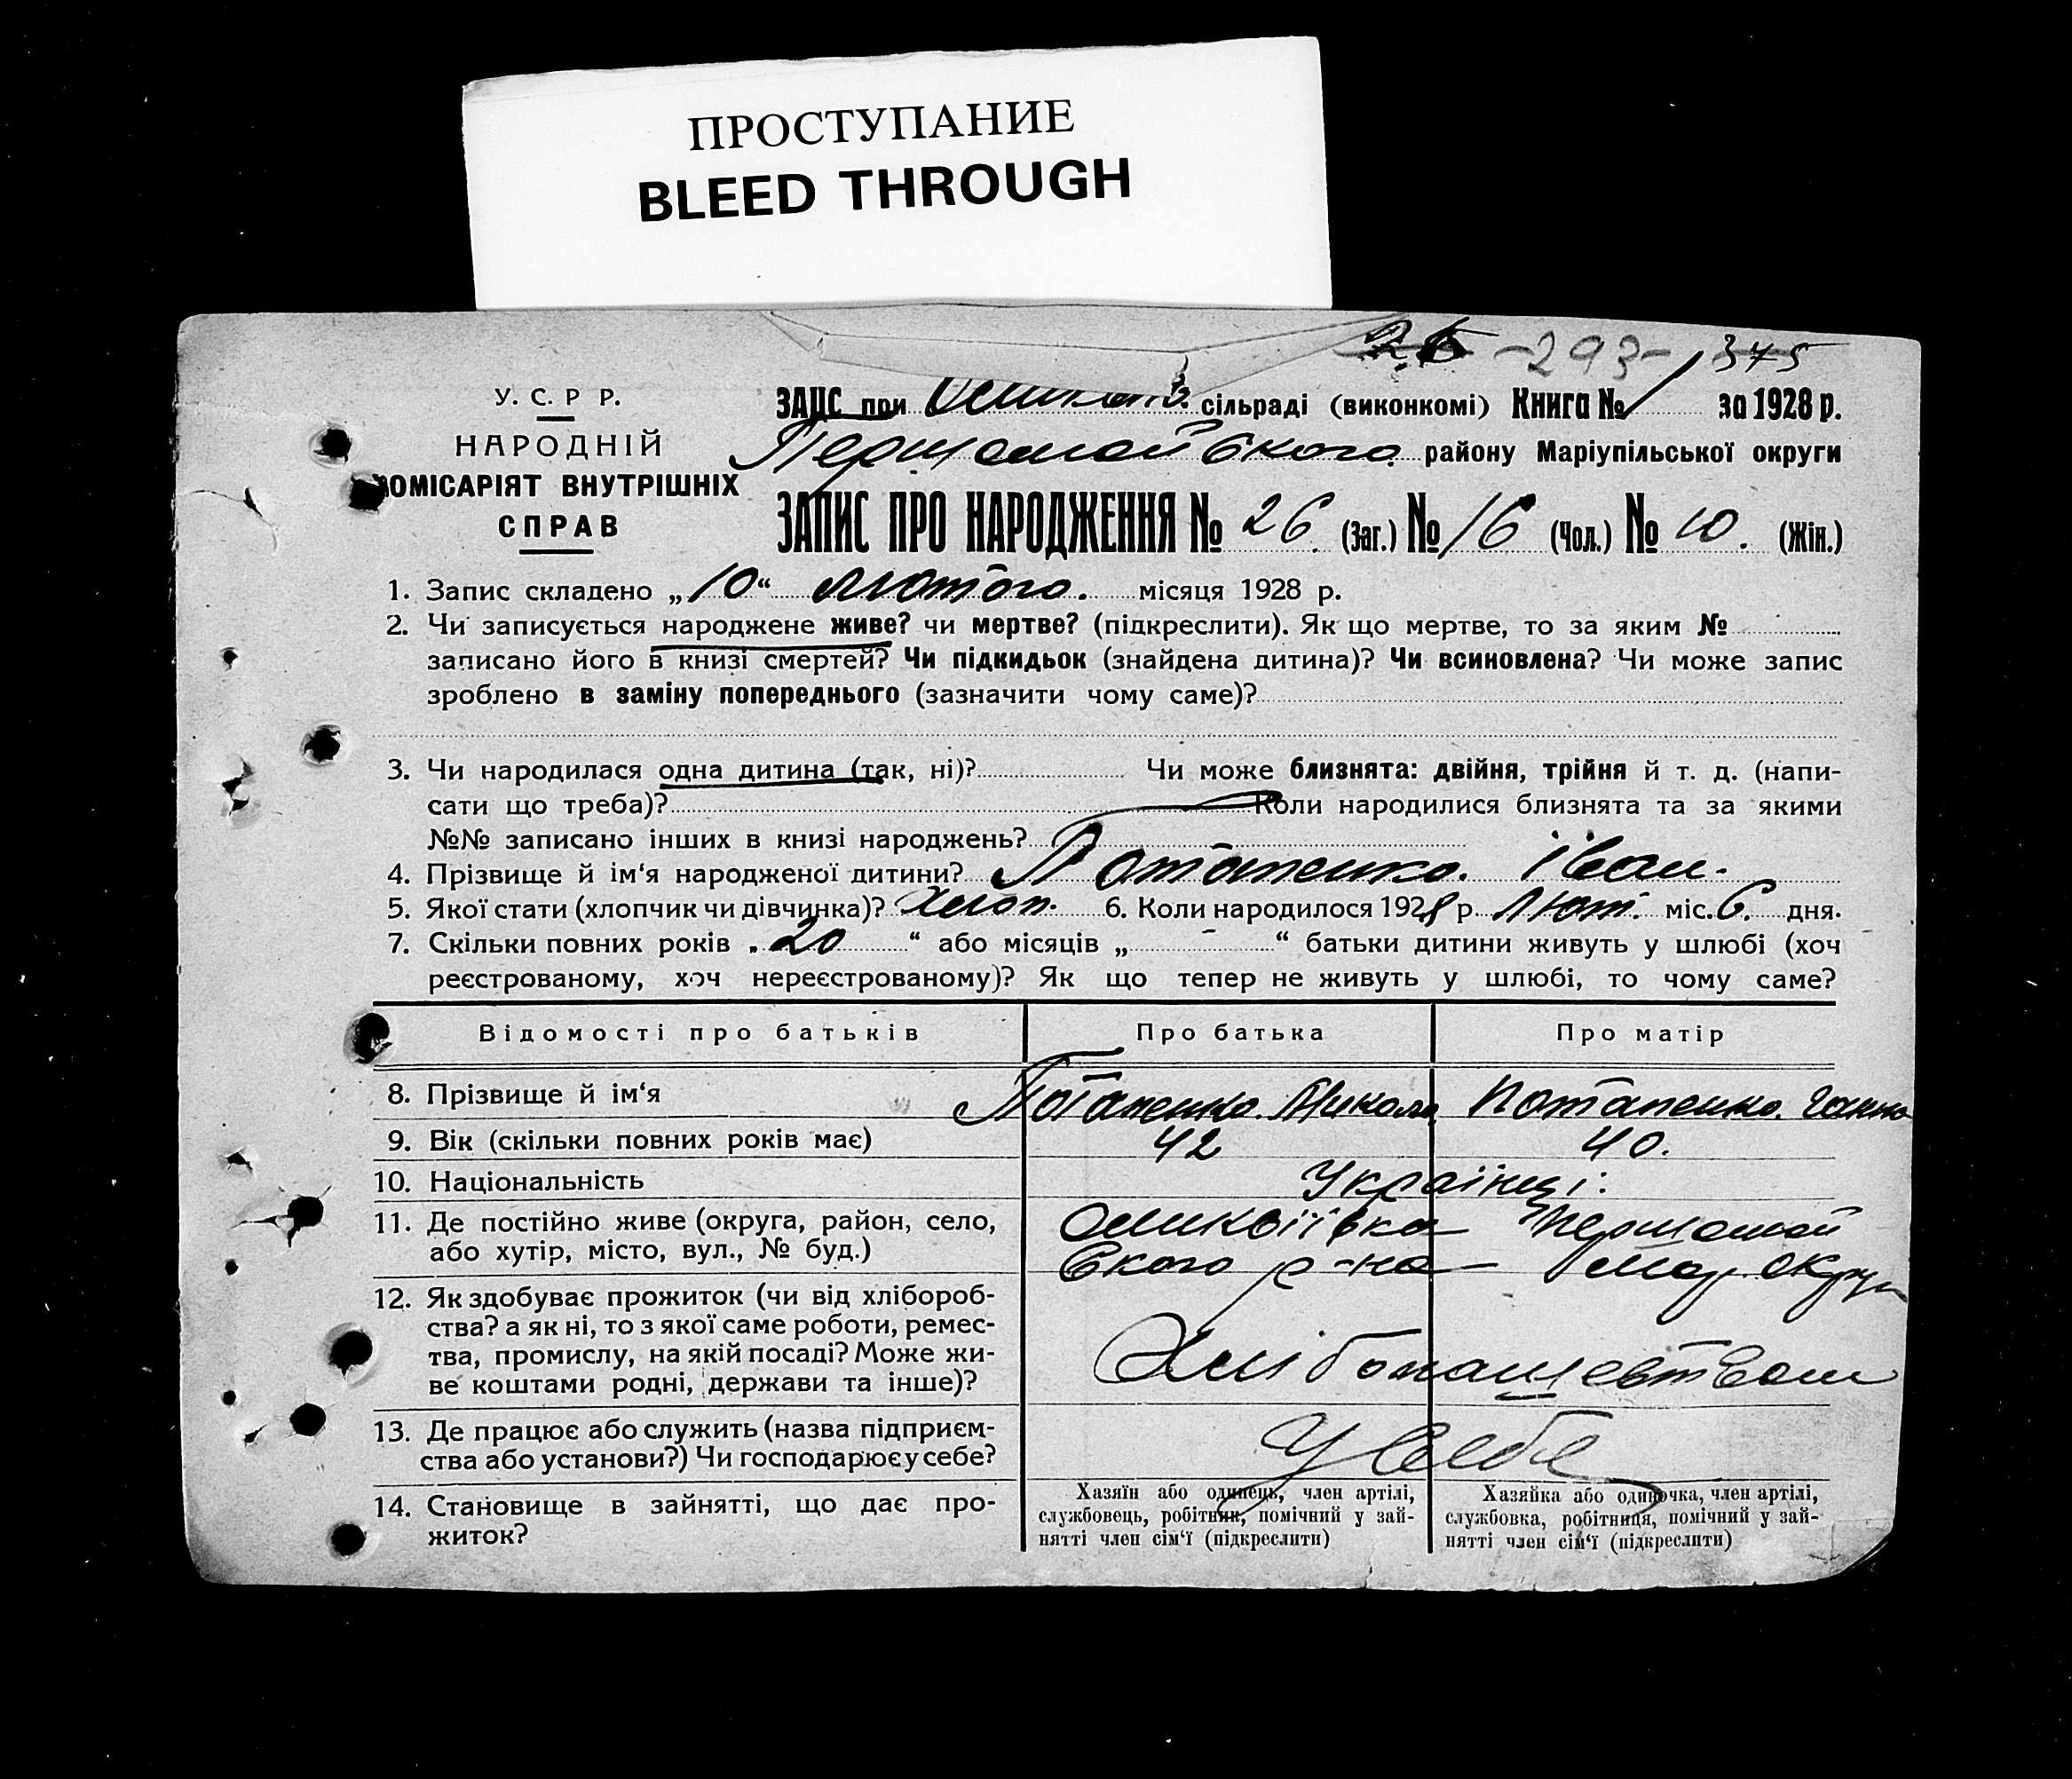 ПРОСТУПАНИЕ
BLEED THROUGH
26 -293- 375
У. С. Р Р.
НАРОДНІЙ
КОМІСАРІЯТ ВНУТРІШНІХ
СПРАВ
ЗАЦС при сільраді (виконкомі) Книга № 1 за 1928 р.
Першомайського району Маріупільської округи
ЗАПИС ПРО НАРОДЖЕННЯ № 26. (Заг.) № 16 (Чол.) № 10. (Жін.)
1. Запис складено „10“ лютого. місяця 1928 р.
2. Чи записується народжене живе? чи мертве? (підкреслити). Як що мертве, то за яким №
записано його в книзі смертей? Чи підкидьок (знайдена дитина)? Чи всиновлена? Чи може запис
зроблено в заміну попереднього (зазначити чому саме)?
3. Чи народилася одна дитина (так, ні)? Чи може близнята: двійня, трійня й т. д. (напи-
сати що треба)? Коли народилися близнята та за якими
№№ записано інших в книзі народжень?
4. Прізвище й ім‘я народженої дитини? Потапенко. Іван.
5. Якої стати (хлопчик чи дівчинка)? Хлоп. 6. Коли народилося 1928 р. Лют. міс. 6. дня.
7. Скільки повних років „20“ або місяців „-“ батьки дитини живуть у шлюбі (хоч
реєстрованому, хоч нереєстрованому)? Як що тепер не живуть у шлюбі, то чому саме?
Відомості про батьків Про батька Про матір
8. Прізвище й ім‘я Потапенко. Микола Потапенко. Ганна
9. Вік (скільки повних років має) 42 40.
10. Національність Українці.
11. Де постійно живе (округа, район, село, Першомай
або хутір, місто, вул., № буд.) ського р-на Мар. округи
12. Як здобуває прожиток (чи від хлібороб-
ства? а як ні, то з якої саме роботи, ремес-
тва, промислу, на якій посаді? Може жи-
ве коштами родні, держави та інше)?
13. Де працює або служить (назва підприєм-
ства або установи?) Чи господарює у себе? У себе
14. Становище в зайнятті, що дає про-
житок?
Хазяїн або одинець, член артілі,
службовець, робітник, помічний у зай-
нятті член сім‘ї (підкреслити)
Хазяйка або одиночка, член артілі,
службовка, робітниця, помічний у зай-
нятті член сім‘ї (підкреслити)